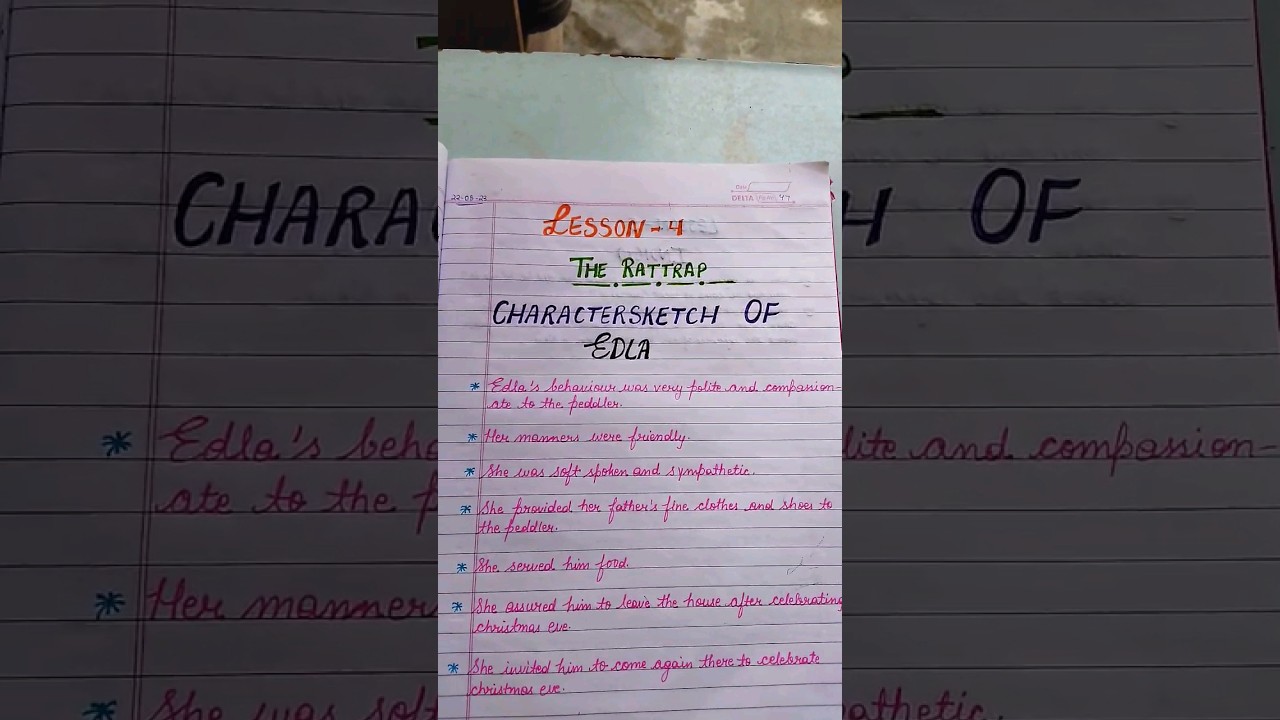 22-08-23
Date
DELTA Pg No. 47
LESSON - 4
THE RATTRAP
CHARACTERSKETCH OF
EDLA
* Edla's behaviour was very polite and compassion-
ate to the peddler.
* Her manners were friendly.
* She was soft spoken and sympathetic.
* She provided her father's fine clothes and shoes to
the peddler.
* She served him food.
* She assured him to leave the house after celebrating
christmas eve.
* She invited him to come again there to celebrate
christmas eve.